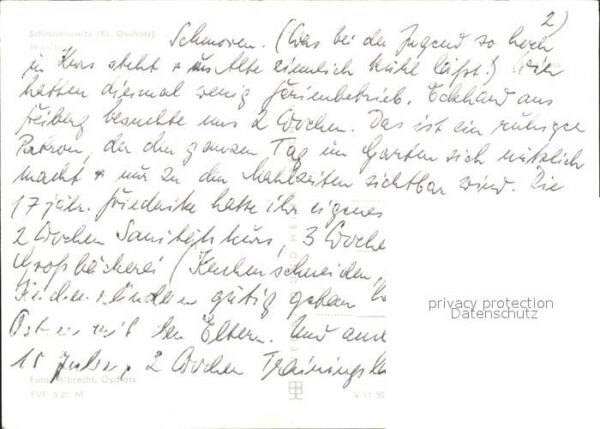 2)
Schmannewitz (Kr. Oschatz)
Schmoren. (Was bei der Jugend so hoch
im Kurs steht + uns Alte ziemlich kühl läßt!) Wir
hatten diesmal wenig Ferienbetrieb. Eckhard aus
Freiberg besuchte uns 2 Wochen. Das ist ein ruhiger
Patron, der den ganzen Tag im Garten sich nützlich
macht + nur zu den Mahlzeiten sichtbar wird. Die
17 jähr. Friederike hatte ihr eigenes
2 Wochen Sanitätskurs, 3 Woche
Großbäckerei (Kuchenschneiden,
gütig geben
Ostsee mit den Eltern. Und
2 Wochen Trainings
privacy protection
Datenschutz
Foto: Albrecht, Oschatz
EVP 0,20 M
V 11 50